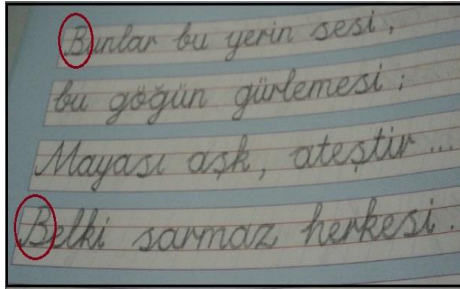 Bunlar bu yerin sesi,
bu göğün gürlemesi;
Mayası aşk, ateştir...
Belki sarmaz herkesi.